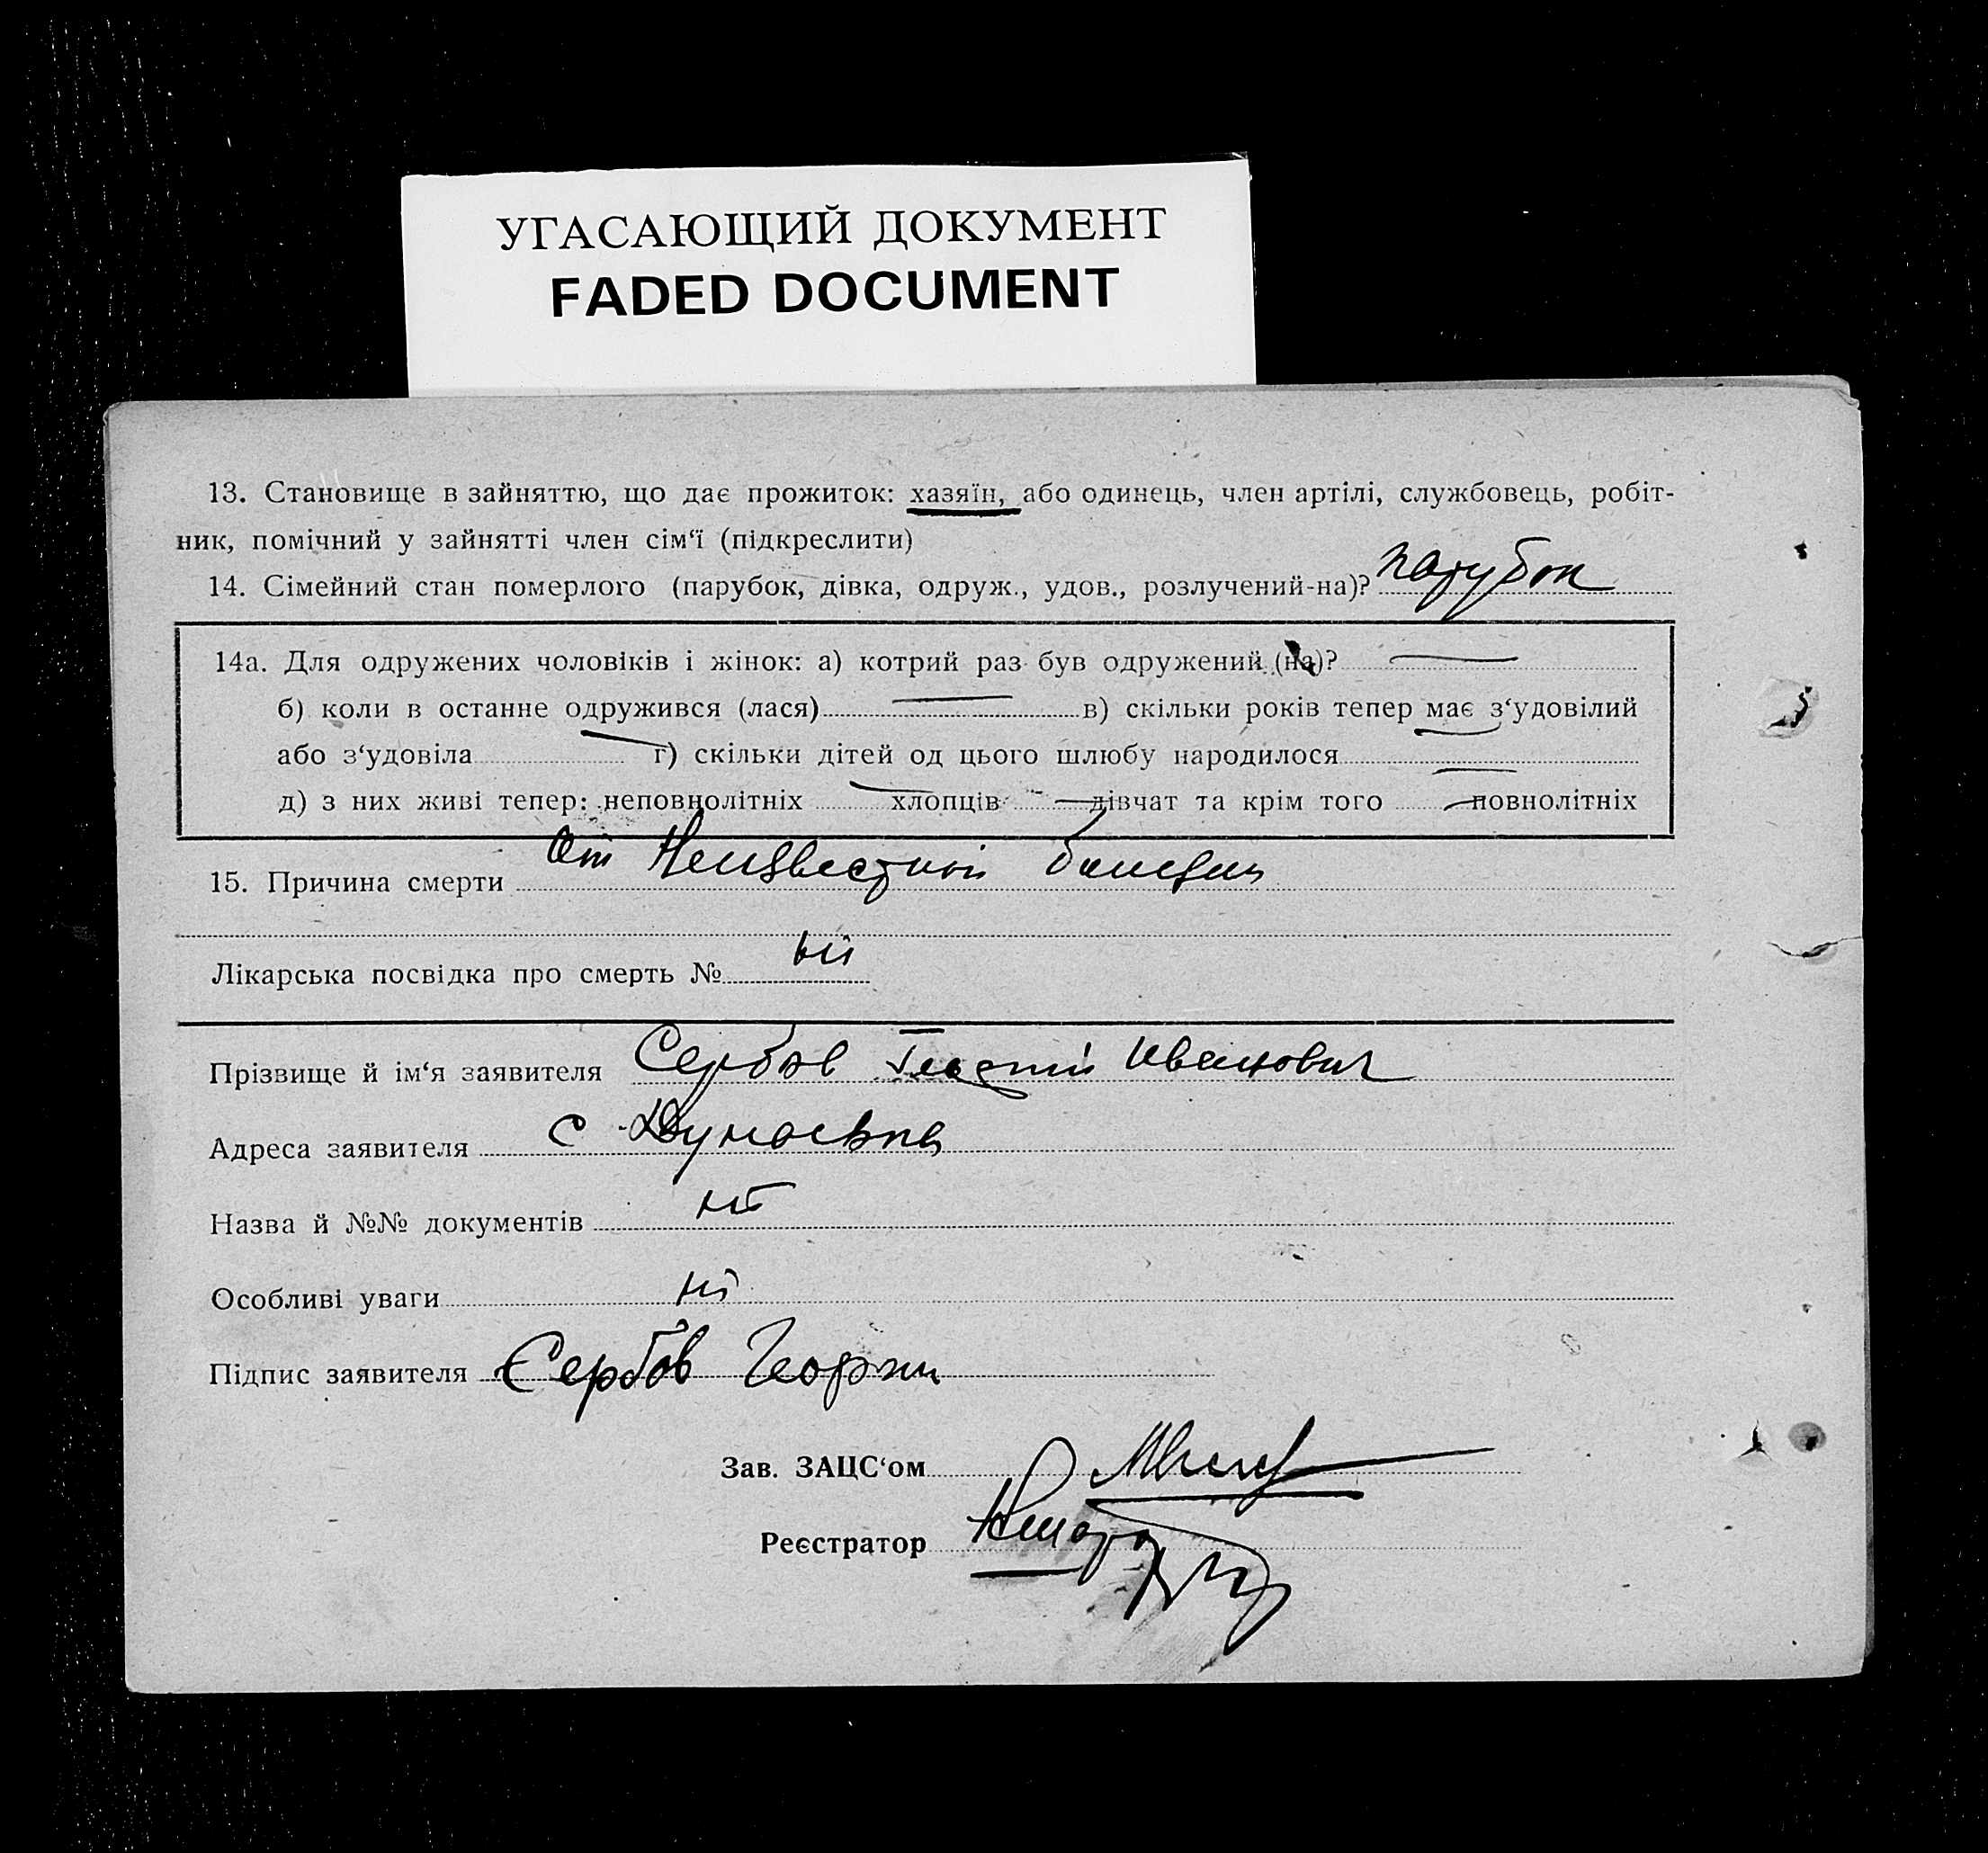 УГАСАЮЩИЙ ДОКУМЕНТ
FADED DOCUMENT
13. Становище в зайняттю, що дає прожиток: хазяїн, або одинець, член артілі, службовець, робіт-
ник, помічний у зайнятті член сім‘ї (підкреслити)
14. Сімейний стан померлого (парубок, дівка, одруж., удов., розлучений-на)? парубок
14а. Для одружених чоловіків і жінок: а) котрий раз був одружений (на)? —
б) коли в останне одружився (лася) — в) скільки років тепер має з‘удовілий
або з‘удовіла — г) скільки дітей од цього шлюбу народилося —
д) з них живі тепер: неповнолітніх — хлопців — дівчат та крім того — повнолітніх
15. Причина смерти От Неизвестной болезни
Лікарська посвідка про смерть № ні
Прізвище й ім‘я заявителя Сербов Георгий Иванович
Адреса заявителя с
Назва й №№ документів ні
Особливі уваги ні
Підпис заявителя Сербов Георги
Зав. ЗАЦС‘ом
Реєстратор